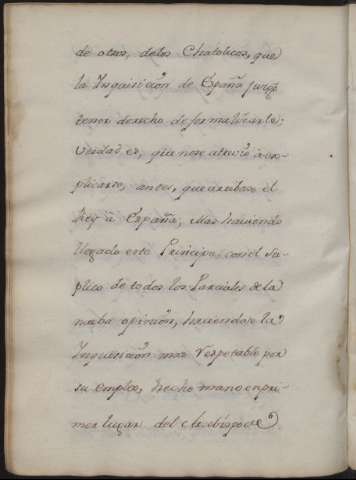 de otros, delos Chatolicos, que
la Inquisición de España juzgó
tener derecho de formalizarle;
verdad es, que nose atrevió a ex-
plicarse, antes, que arribase el
Rey á España, Mas haviendo
llegado este Principe, con el Su-
plico de todos los Parciales de la
nueba opinión, haciendose la
Inquisición mas respetable por
su empleo, hecho mano en pri-
mer lugar del Arzobispo de